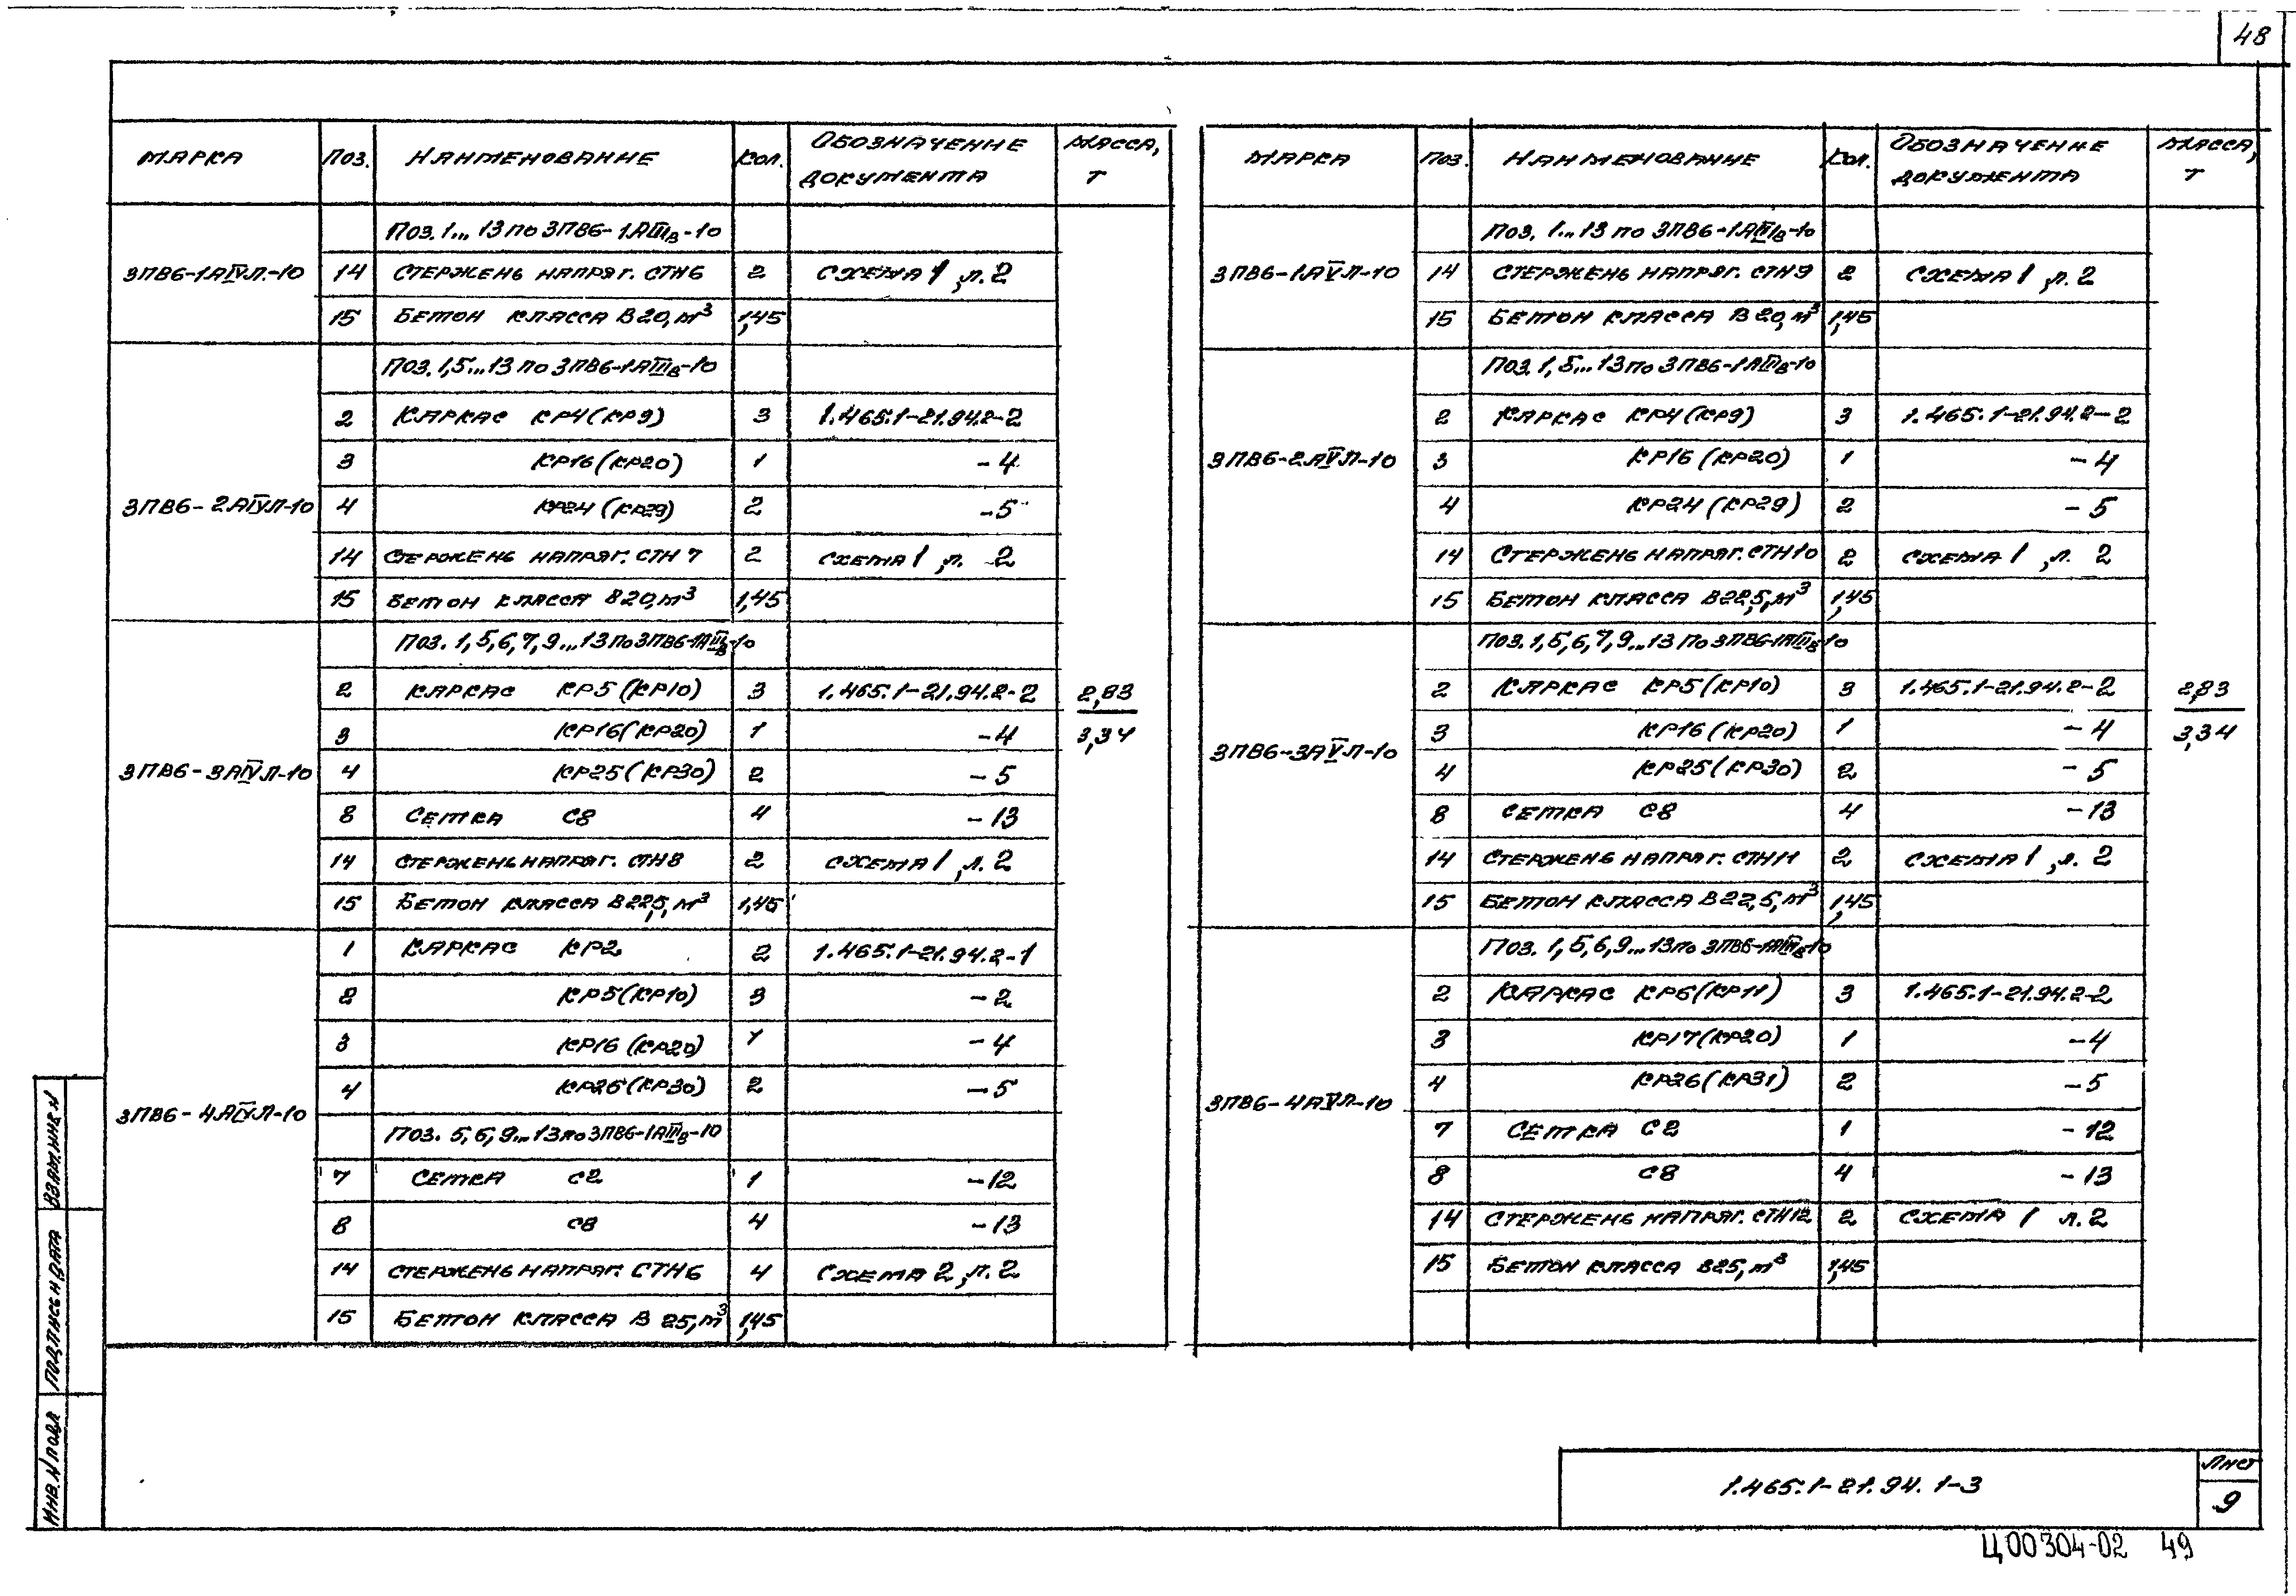 48
МАРКА ПОЗ. НАИМЕНОВАНИЕ КОЛ. ОБОЗНАЧЕНИЕ ДОКУМЕНТА МАССА, Т
ПОЗ. 1... 13 ПО 3ПВ6-1АIIIв-10
3ПВ6-1АIVЛ-10 14 СТЕРЖЕНЬ НАПРЯГ. СТН6 2 СХЕМА 1, Л. 2
15 БЕТОН КЛАССА В20, М³ 1,45
ПОЗ. 1,5...13 ПО 3ПВ6-1АIIIв-10
2 КАРКАС КР4(КР9) 3 1.465.1-21.94.2-2
3 КР16(КР20) 1 -4
3ПВ6-2АIVЛ-10 4 КР24(КР29) 2 -5
14 СТЕРЖЕНЬ НАПРЯГ. СТН7 2 СХЕМА 1, Л. 2
15 БЕТОН КЛАССА В20, М³ 1,45
ПОЗ. 1,5,6,7,9...13 ПО 3ПВ6-1АIIIв-10
2 КАРКАС КР5(КР10) 3 1.465.1-21.94.2-2 2,83
3 КР16(КР20) 1 -4 3,34
3ПВ6-3АIVЛ-10 4 КР25(КР30) 2 -5
8 СЕТКА С8 4 -13
14 СТЕРЖЕНЬ НАПРЯГ. СТН8 2 СХЕМА 1, Л. 2
15 БЕТОН КЛАССА В22,5, М³ 1,45
1 КАРКАС КР2 2 1.465.1-21.94.2-1
2 КР5(КР10) 3 -2
3 КР16(КР20) 1 -4
4 КР26(КР30) 2 -5
3ПВ6-4АIVЛ-10
ПОЗ. 5,6,9...13 ПО 3ПВ6-1АIIIв-10
7 СЕТКА С2 1 -12
8 С8 4 -13
14 СТЕРЖЕНЬ НАПРЯГ. СТН6 4 СХЕМА 2, Л. 2
15 БЕТОН КЛАССА В 25, М³ 1,45
МАРКА ПОЗ. НАИМЕНОВАНИЕ КОЛ. ОБОЗНАЧЕНИЕ ДОКУМЕНТА МАССА, Т
ПОЗ. 1...13 ПО 3ПВ6-1АIIIв-10
3ПВ6-1АVЛ-10 14 СТЕРЖЕНЬ НАПРЯГ. СТН9 2 СХЕМА 1, Л. 2
15 БЕТОН КЛАССА В20, М³ 1,45
ПОЗ. 1,5...13 ПО 3ПВ6-1АIIIв-10
2 КАРКАС КР4(КР9) 3 1.465.1-21.94.2-2
3ПВ6-2АVЛ-10 3 КР16(КР20) 1 -4
4 КР24(КР29) 2 -5
14 СТЕРЖЕНЬ НАПРЯГ. СТН10 2 СХЕМА 1, Л. 2
15 БЕТОН КЛАССА В22,5, М³ 1,45
ПОЗ. 1,5,6,7,9...13 ПО 3ПВ6-1АIIIв-10
2 КАРКАС КР5(КР10) 3 1.465.1-21.94.2-2 2,83
3 КР16(КР20) 1 -4 3,34
3ПВ6-3АVЛ-10
4 КР25(КР30) 2 -5
8 СЕТКА С8 4 -13
14 СТЕРЖЕНЬ НАПРЯГ. СТН11 2 СХЕМА 1, Л. 2
15 БЕТОН КЛАССА В22,5, М³ 1,45
ПОЗ. 1,5,6,9...13 ПО 3ПВ6-1АIIIв-10
2 КАРКАС КР6(КР11) 3 1.465.1-21.94.2-2
3 КР17(КР20) 1 -4
4 КР26(КР31) 2 -5
3ПВ6-4АVЛ-10
7 СЕТКА С2 1 -12
8 С8 4 -13
14 СТЕРЖЕНЬ НАПРЯГ. СТН12 2 СХЕМА 1 Л. 2
15 БЕТОН КЛАССА В25, М³ 1,45
ИНВ. N ПОДЛ ПОДПИСЬ И ДАТА ВЗАМ. ИНВ. N
1.465.1-21.94.1-3
ЛИСТ
9
Ц00304-02 49